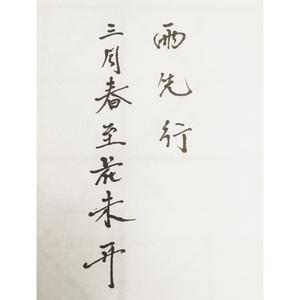 雨先行
三月春至花未开